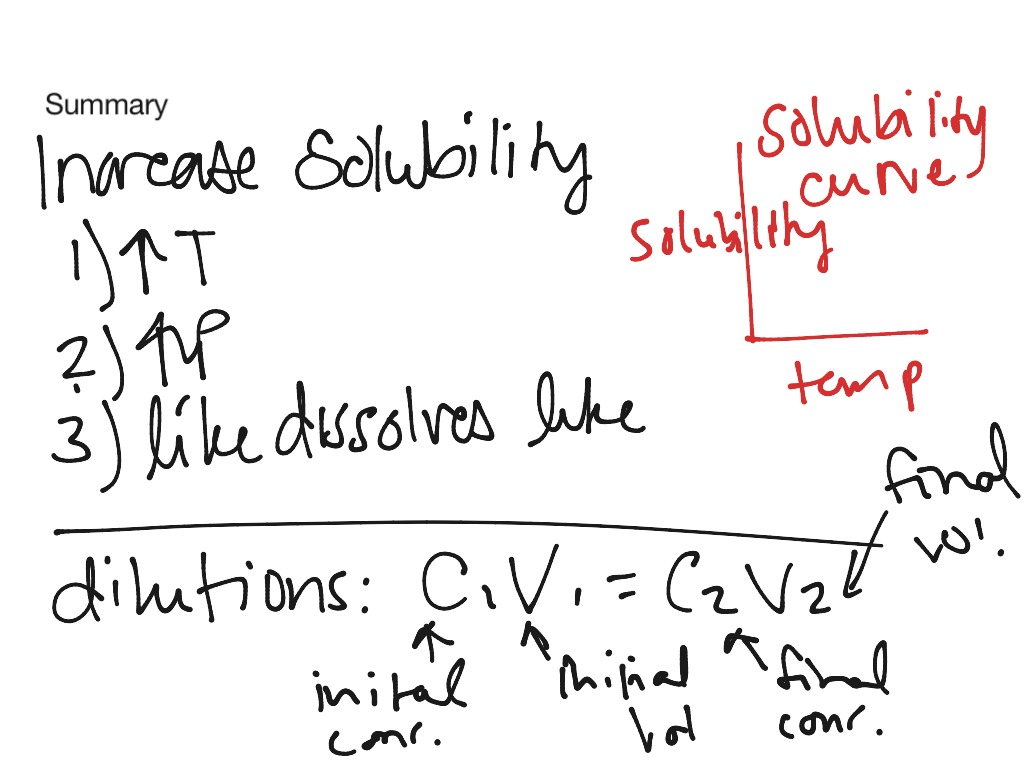 Summary
Increase Solubility
1) ↑ T
2) ↑ P
3) like dissolves like
Solubility
curve
Solubility
temp
dilutions: C₁V₁ = C₂V₂
final
vol.
inital
conc.
initial
vol
final
conc.